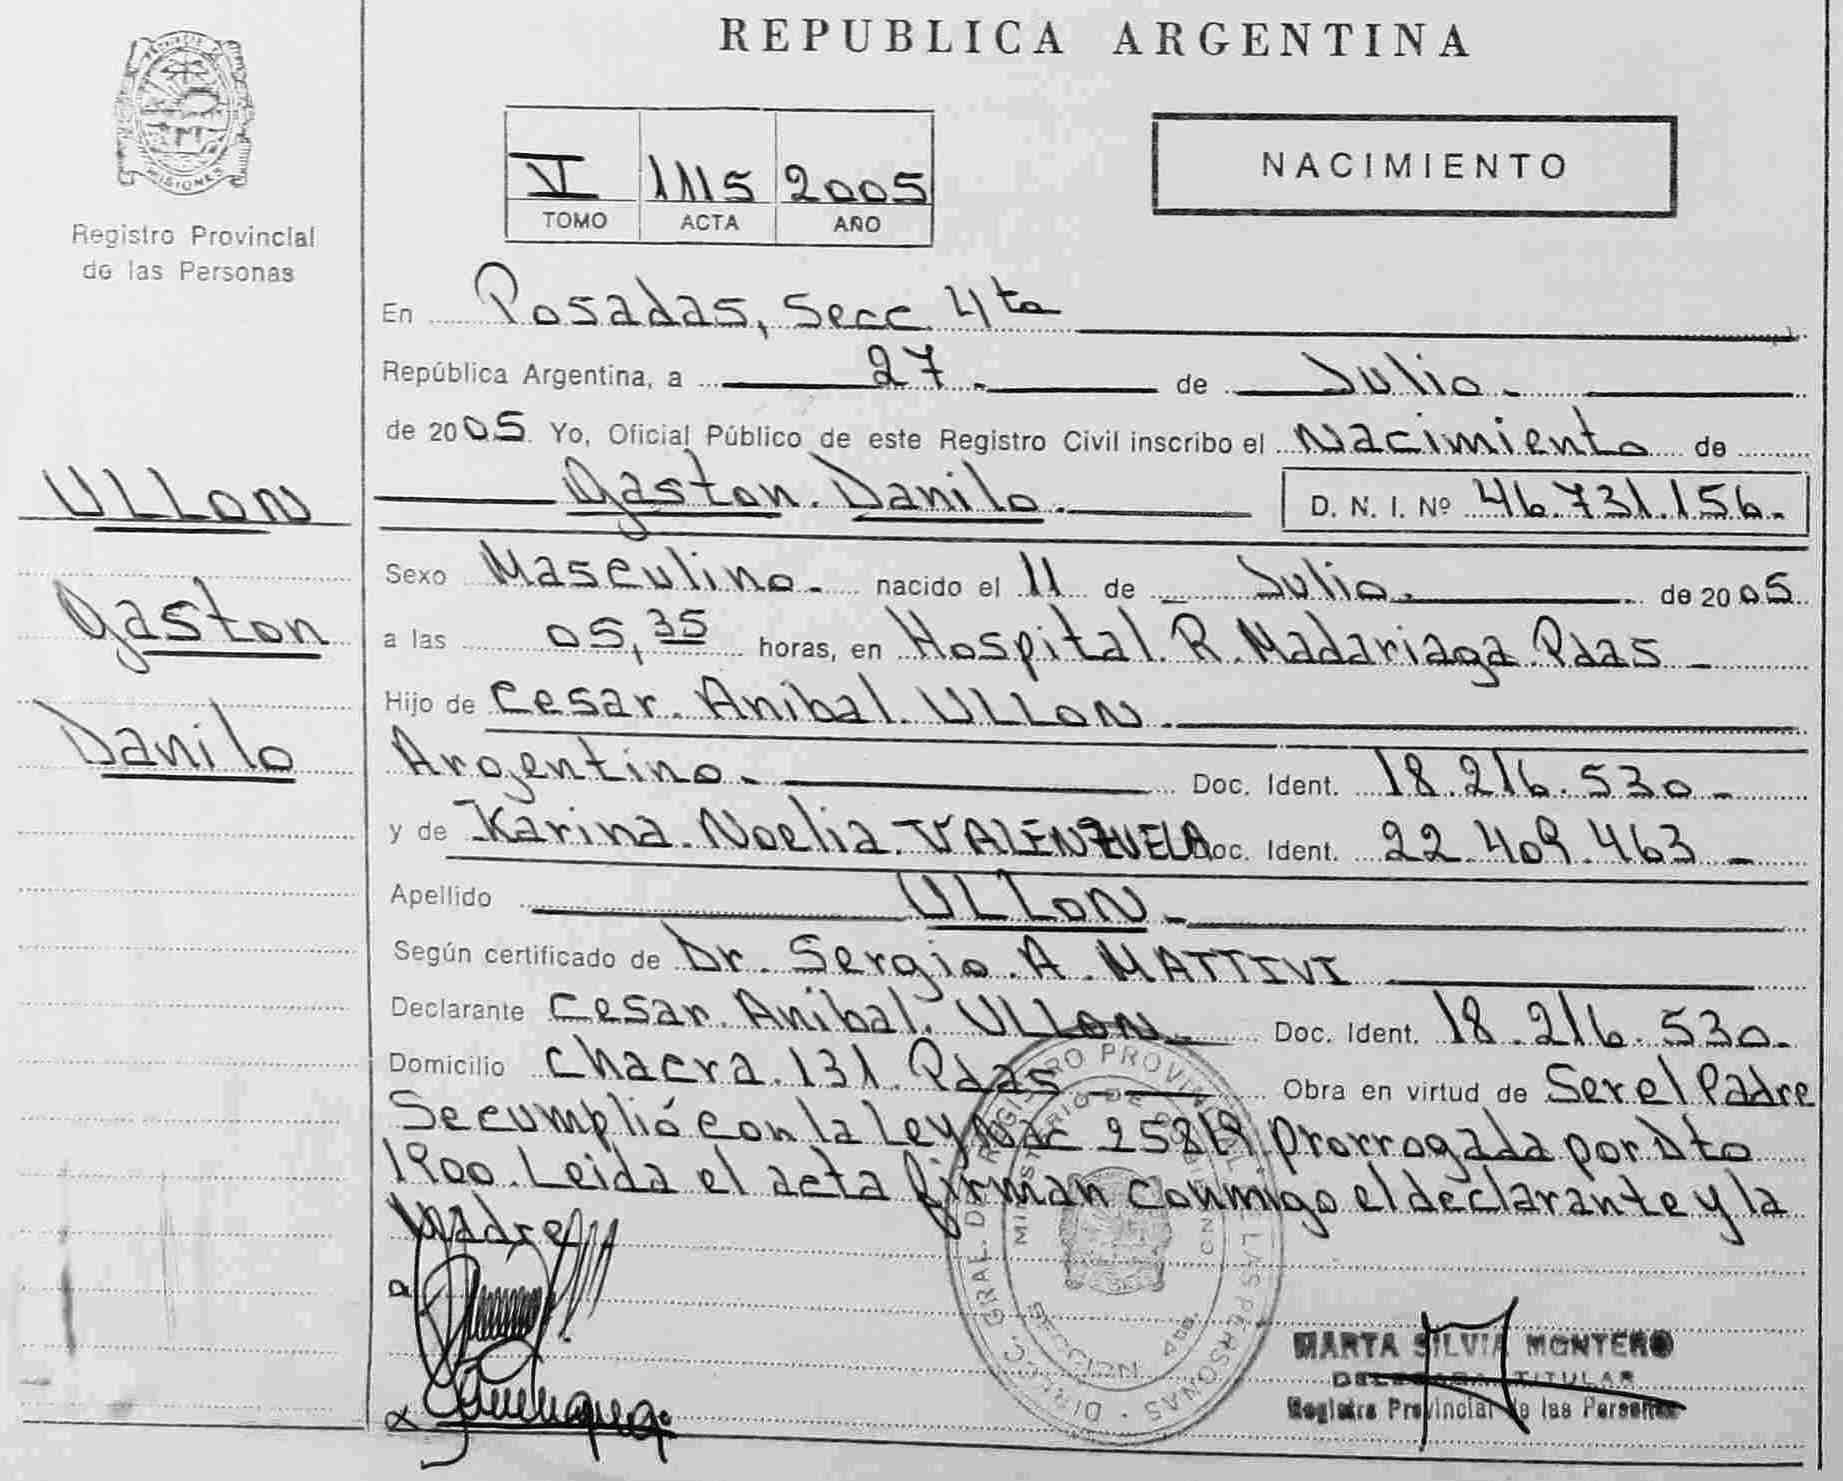 REPUBLICA ARGENTINA
MISIONES
Registro Provincial
de las Personas
VI 1115 2005
TOMO ACTA AÑO
NACIMIENTO
En Posadas, Secc. 4ta
República Argentina, a 27 de Julio
de 2005. Yo, Oficial Público de este Registro Civil inscribo el Nacimiento de
Gaston Danilo D. N. I. Nº 46.731.156
ULLON
Gaston
Danilo
Sexo Masculino nacido el 11 de Julio de 2005
a las 05,35 horas, en Hospital R. Madariaga Pdas
Hijo de Cesar Anibal ULLON
Argentino Doc. Ident. 18.216.530
y de Karina Noelia VALENZUELA Doc. Ident. 22.409.463
Apellido ULLON
Según certificado de Dr. Sergio A. MATTIVI
Declarante Cesar Anibal ULLON Doc. Ident. 18.216.530
Domicilio Chacra 131 Pdas Obra en virtud de Ser el Padre
Se cumplió con la Ley Nac 25819 prorrogada por Dto
1900. Leida el acta firman conmigo el declarante y la
Madre
MARTA SILVIA MONTERO
DELEGADA TITULAR
Registro Provincial de las Personas